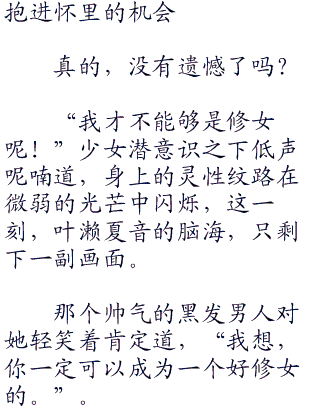 抱进怀里的机会
真的，没有遗憾了吗？
“我才不能够是修女
呢！”少女潜意识之下低声
呢喃道，身上的灵性纹路在
微弱的光芒中闪烁，这一
刻，叶濑夏音的脑海，只剩
下一副画面。
那个帅气的黑发男人对
她轻笑着肯定道，“我想，
你一定可以成为一个好修女
的。”。